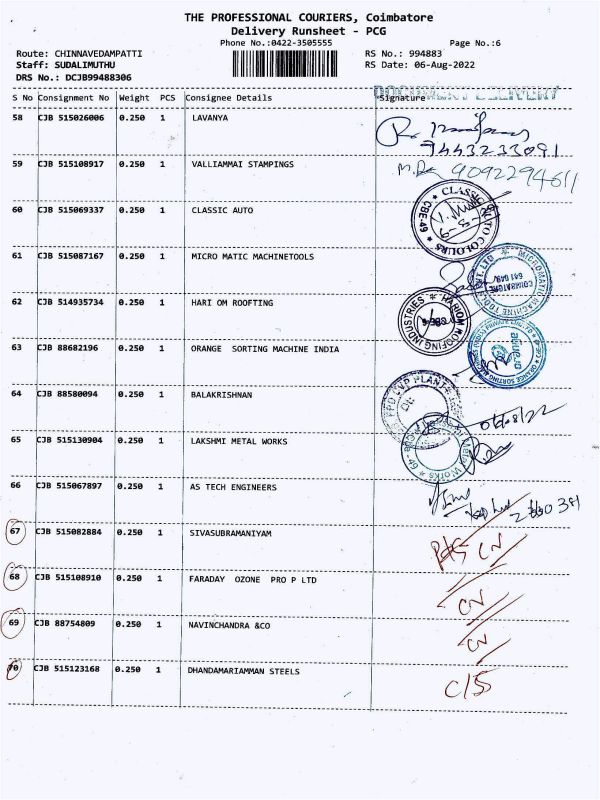 THE PROFESSIONAL COURIERS, Coimbatore
Delivery Runsheet - PCG
Phone No.:0422-3505555 Page No.:6
Route: CHINNAVEDAMPATTI RS No.: 994883
Staff: SUDALIMUTHU RS Date: 06-Aug-2022
DRS No.: DCJB99488306
DOCUMENT DELIVERY
S No Consignment No Weight PCS Consignee Details Signature
58 CJB 515026006 0.250 1 LAVANYA
7443233091
59 CJB 515108917 0.250 1 VALLIAMMAI STAMPINGS 9092294611
60 CJB 515069337 0.250 1 CLASSIC AUTO
CLASSIC AUTO COLOURS
CBE-49
61 CJB 515087167 0.250 1 MICRO MATIC MACHINETOOLS
MICROMATIC MACHINE TOOLS PVT. LTD
COIMBATORE
641 049
62 CJB 514935734 0.250 1 HARI OM ROOFTING
HARIOM ROOFING INDUSTRIES
63 CJB 88682196 0.250 1 ORANGE SORTING MACHINE INDIA
64 CJB 88580094 0.250 1 BALAKRISHNAN
06/8/22
65 CJB 515130904 0.250 1 LAKSHMI METAL WORKS
66 CJB 515067897 0.250 1 AS TECH ENGINEERS
67 CJB 515082884 0.250 1 SIVASUBRAMANIYAM
CN
68 CJB 515108910 0.250 1 FARADAY OZONE PRO P LTD
CN
69 CJB 88754809 0.250 1 NAVINCHANDRA &CO
CN
70 CJB 515123168 0.250 1 DHANDAMARIAMMAN STEELS
C/S